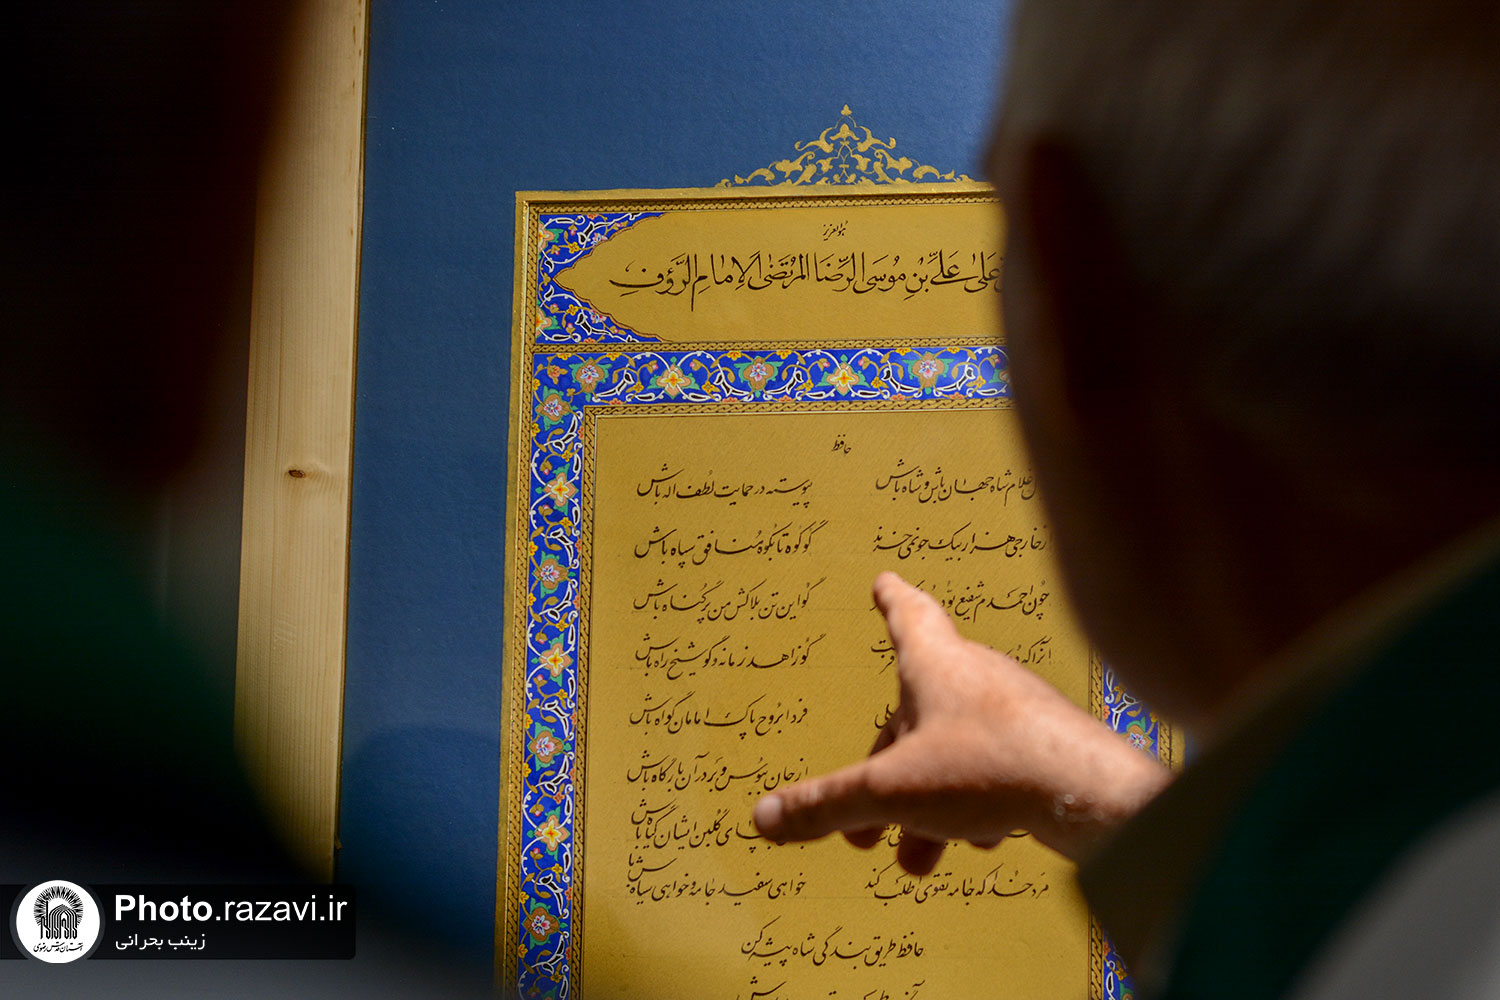 هوالعزیز
عَلیٰ عَلیِّ بْنِ مُوسَی الرِّضَا المُرتَضیٰ الاِمامِ الرَّؤفِ
حافظ
غلام شاه جهان باش و شاه باش
پیوسته در حمایت لطف اله باش
از خارجی هزار بیک جو نمی خرند
گو کوه تا بکوه منافق سپاه باش
چون احمدم شفیع بود
گو این تن بلاکش من پرگناه باش
آنرا که
گو زاهد زمانه و گو شیخ راه باش
فردا بروح پاک امامان گواه باش
از جان ببوس و بر در آن بارگاه باش
بپای گلبن ایشان گیاه باش
مرد خدا که جامه تقوی طلب کند
خواهی سفید جامه و خواهی سیاه باش
حافظ طریق بندگی شاه پیشه کن
Photo.razavi.ir
زینب بحرانی
آستان قدس رضوی